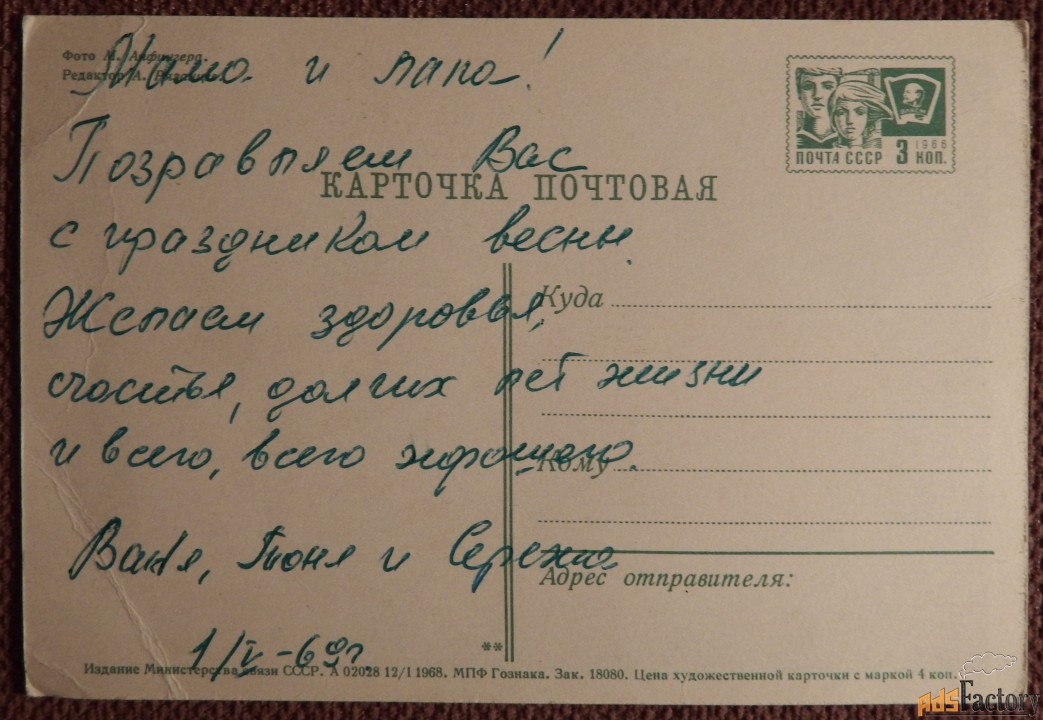 Фото М. Анфингера.
Редактор А.
Мама и папа!
Позравляем Вас
с праздником весны.
Желаем здоровья,
счастья, долгих лет жизни
и всего, всего хорошего.
Ваня, Тоня и Сережа
1/V-69г.
ПОЧТА СССР 3 КОП.
1966
КАРТОЧКА ПОЧТОВАЯ
Куда
Кому
Адрес отправителя:
**
Издание Министерства связи СССР. А 02028 12/I 1968. МПФ Гознака. Зак. 18080. Цена художественной карточки с маркой 4 коп.
AdsFactory